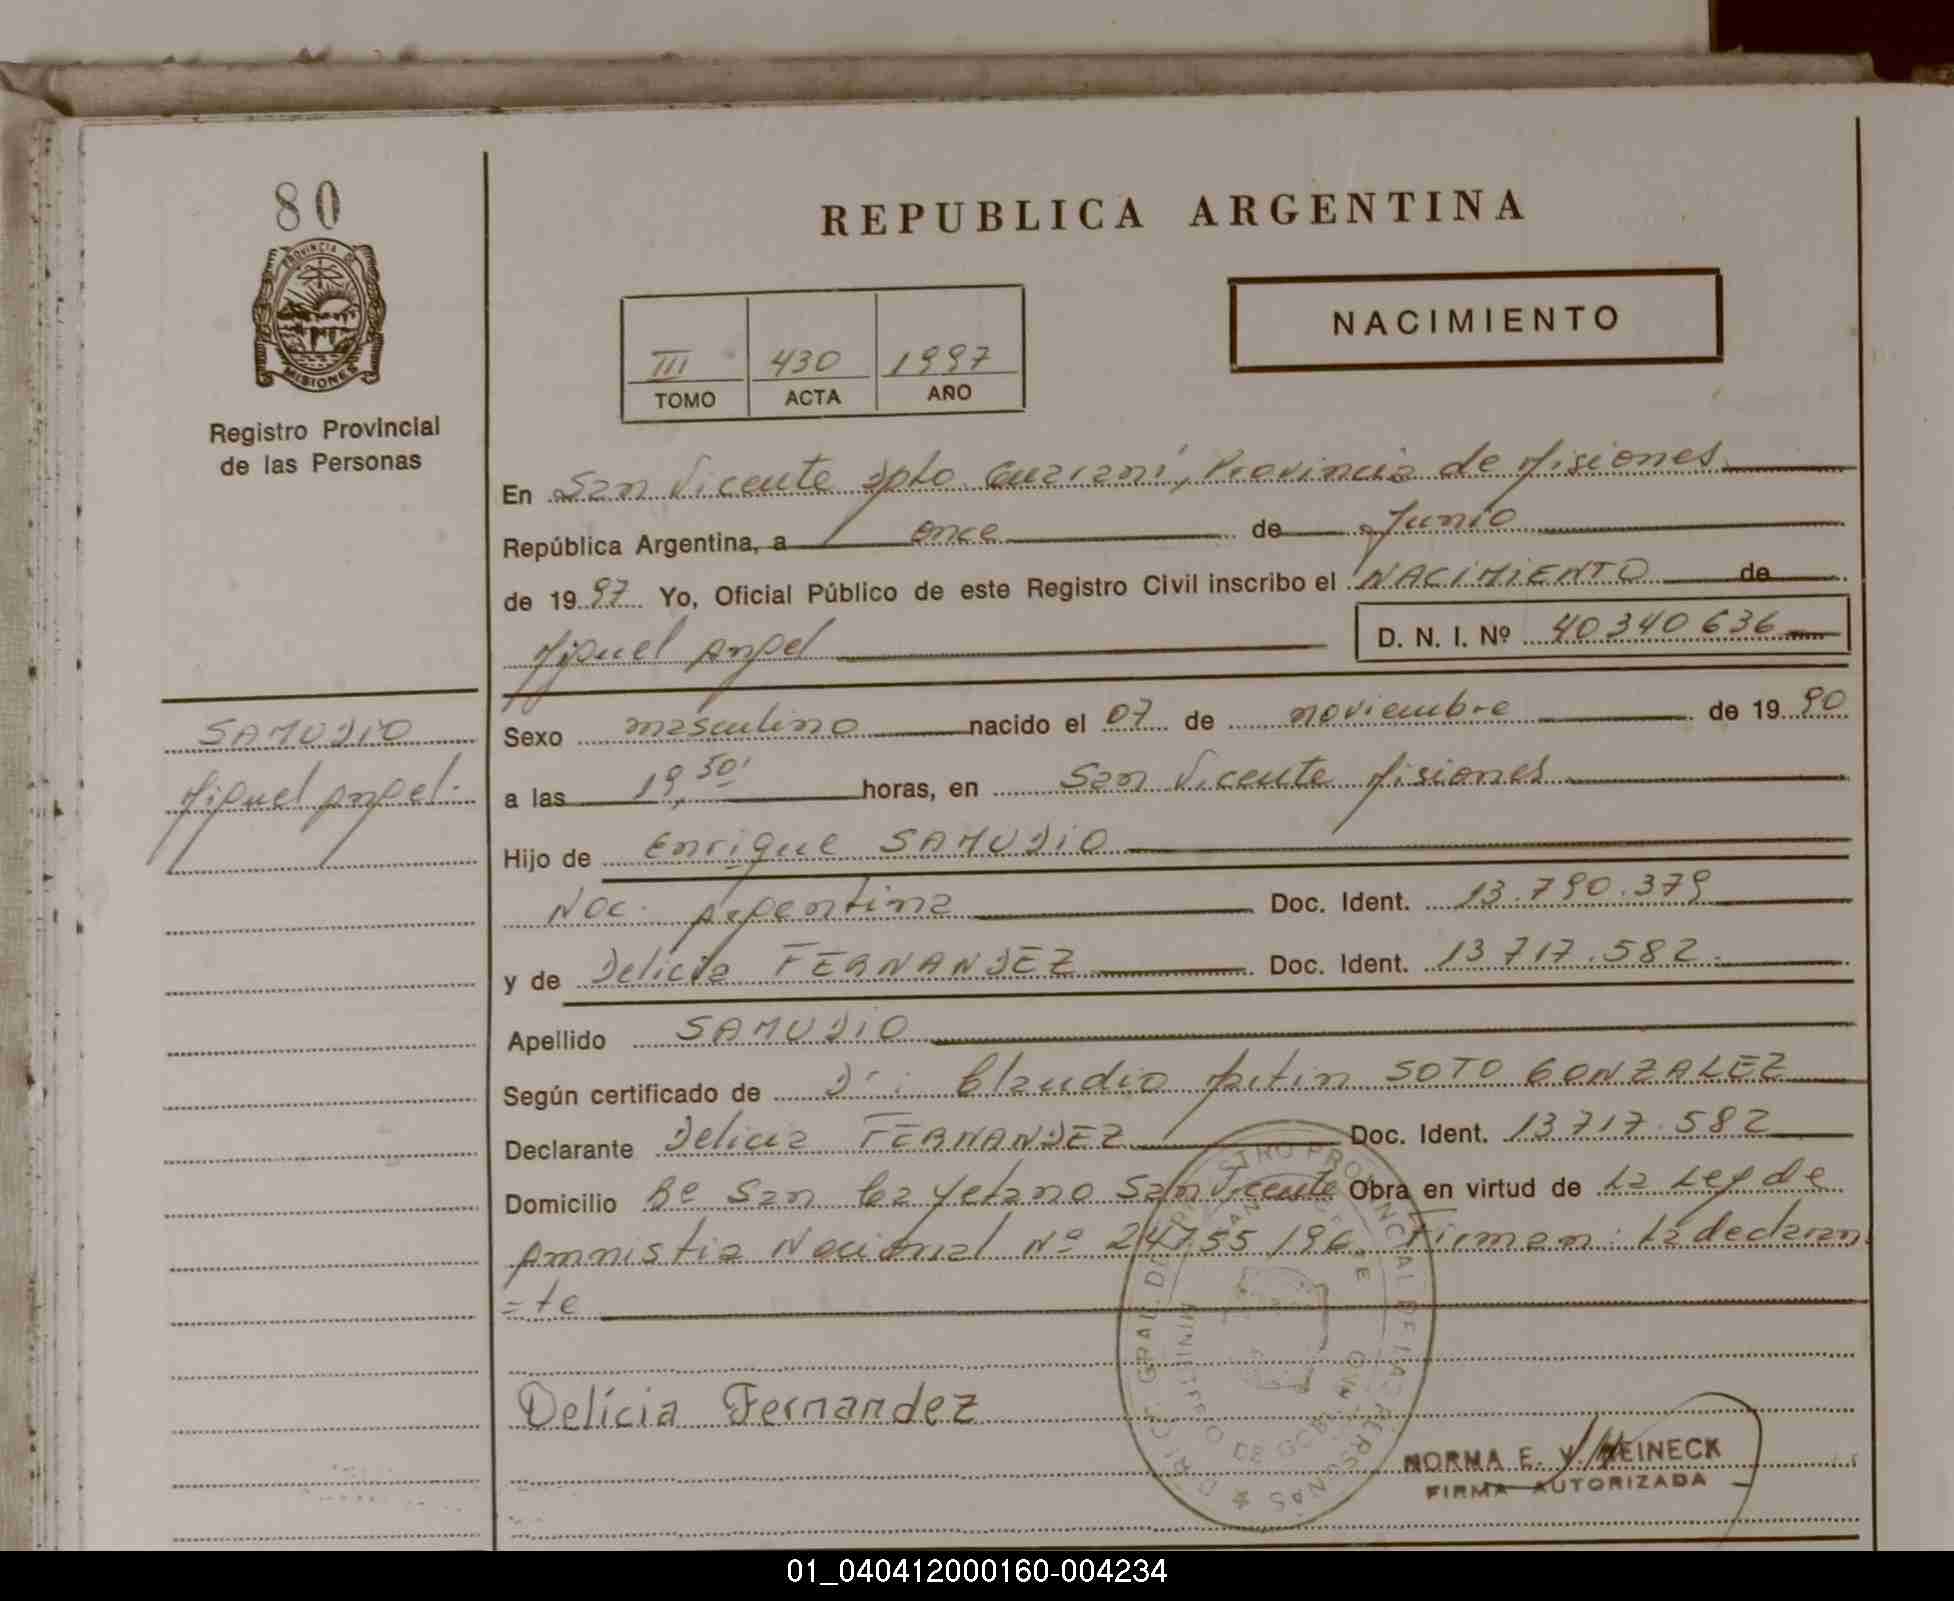 80
PROVINCIA DE
MISIONES
Registro Provincial
de las Personas
REPUBLICA ARGENTINA
NACIMIENTO
III 430 1997
TOMO ACTA AÑO
En San Vicente Dpto. Guaraní, Provincia de Misiones
República Argentina, a once de Junio
de 1997 Yo, Oficial Público de este Registro Civil inscribo el NACIMIENTO de
Miguel Angel D. N. I. Nº 40340636
SAMUDIO
Miguel Angel.
Sexo masculino nacido el 07 de noviembre de 1990
a las 19,50' horas, en San Vicente Misiones
Hijo de Enrique SAMUDIO
Nac. Argentina Doc. Ident. 13.790.379
y de Delicia FERNANDEZ Doc. Ident. 13717.582.
Apellido SAMUDIO
Según certificado de Dr: Claudio SOTO GONZALEZ
Declarante Delicia FERNANDEZ Doc. Ident. 13717.582
Domicilio Bº San Cayetano San Vicente Obra en virtud de La Ley de
Amnistia Nacional Nº 24755/96 Firman: La declaran
=te
Delicia Fernandez
NORMA E. V. HEINECK
FIRMA AUTORIZADA
01_040412000160-004234